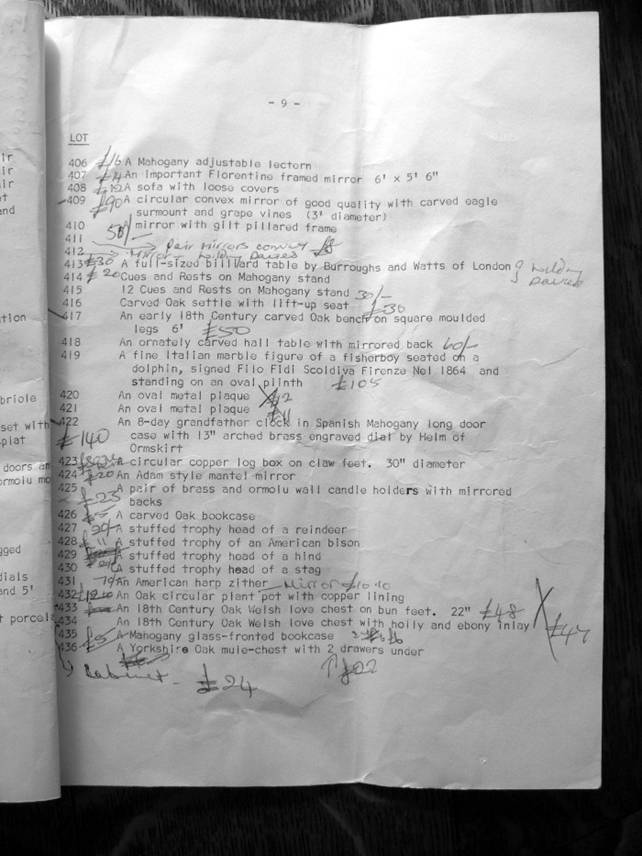 - 9 -
LOT
406 £16 A Mahogany adjustable lectern
407 £4 An important Florentine framed mirror 6' x 5' 6"
408 A sofa with loose covers
409 £90 A circular convex mirror of good quality with carved eagle
surmount and grape vines (3' diameter)
410 50/- mirror with gilt pillared frame
411 Pair Mirrors convex £8
412 Mirror
413 £30 A full-sized billiard table by Burroughs and Watts of London
414 £20 Cues and Rests on Mahogany stand
415 12 Cues and Rests on Mahogany stand 30/-
416 Carved Oak settle with lift-up seat £30
417 An early 18th Century carved Oak bench on square moulded
legs 6' £50
418 An ornately carved hall table with mirrored back 60/-
419 A fine Italian marble figure of a fisherboy seated on a
dolphin, signed Filo Fidi Scoldiva Firenze Nel 1864 and
standing on an oval plinth £105
420 An oval metal plaque
421 An oval metal plaque
422 An 8-day grandfather clock in Spanish Mahogany long door
£140 case with 13" arched brass engraved dial by Helm of
Ormskirt
423 A circular copper log box on claw feet. 30" diameter
424 £20 An Adam style mantel mirror
425 A pair of brass and ormolu wall candle holders with mirrored
£23 backs
426 A carved Oak bookcase
427 A stuffed trophy head of a reindeer
428 A stuffed trophy of an American bison
429 A stuffed trophy head of a hind
430 A stuffed trophy head of a stag
431 An American harp zither Mirror £10-10
432 An Oak circular plant pot with copper lining
433 An 18th Century Oak Welsh love chest on bun feet. 22" £48
434 An 18th Century Oak Welsh love chest with holly and ebony inlay £47
435 A Mahogany glass-fronted bookcase
436 A Yorkshire Oak mule-chest with 2 drawers under
£22
Cabinet - £24
ir
ir
ir
and
ation
briole
set with
plat
doors an
ormolu mo
gged
dials
and 5'
t porcela